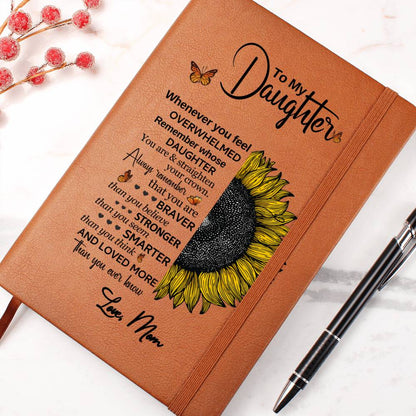 To My
Daughter
Whenever you feel
OVERWHELMED
Remember whose
DAUGHTER
You are & straighten
your crown.
Always remember
that you are
BRAVER
than you believe
STRONGER
than you seem
SMARTER
than you think
AND LOVED MORE
than you ever know
Love, Mom